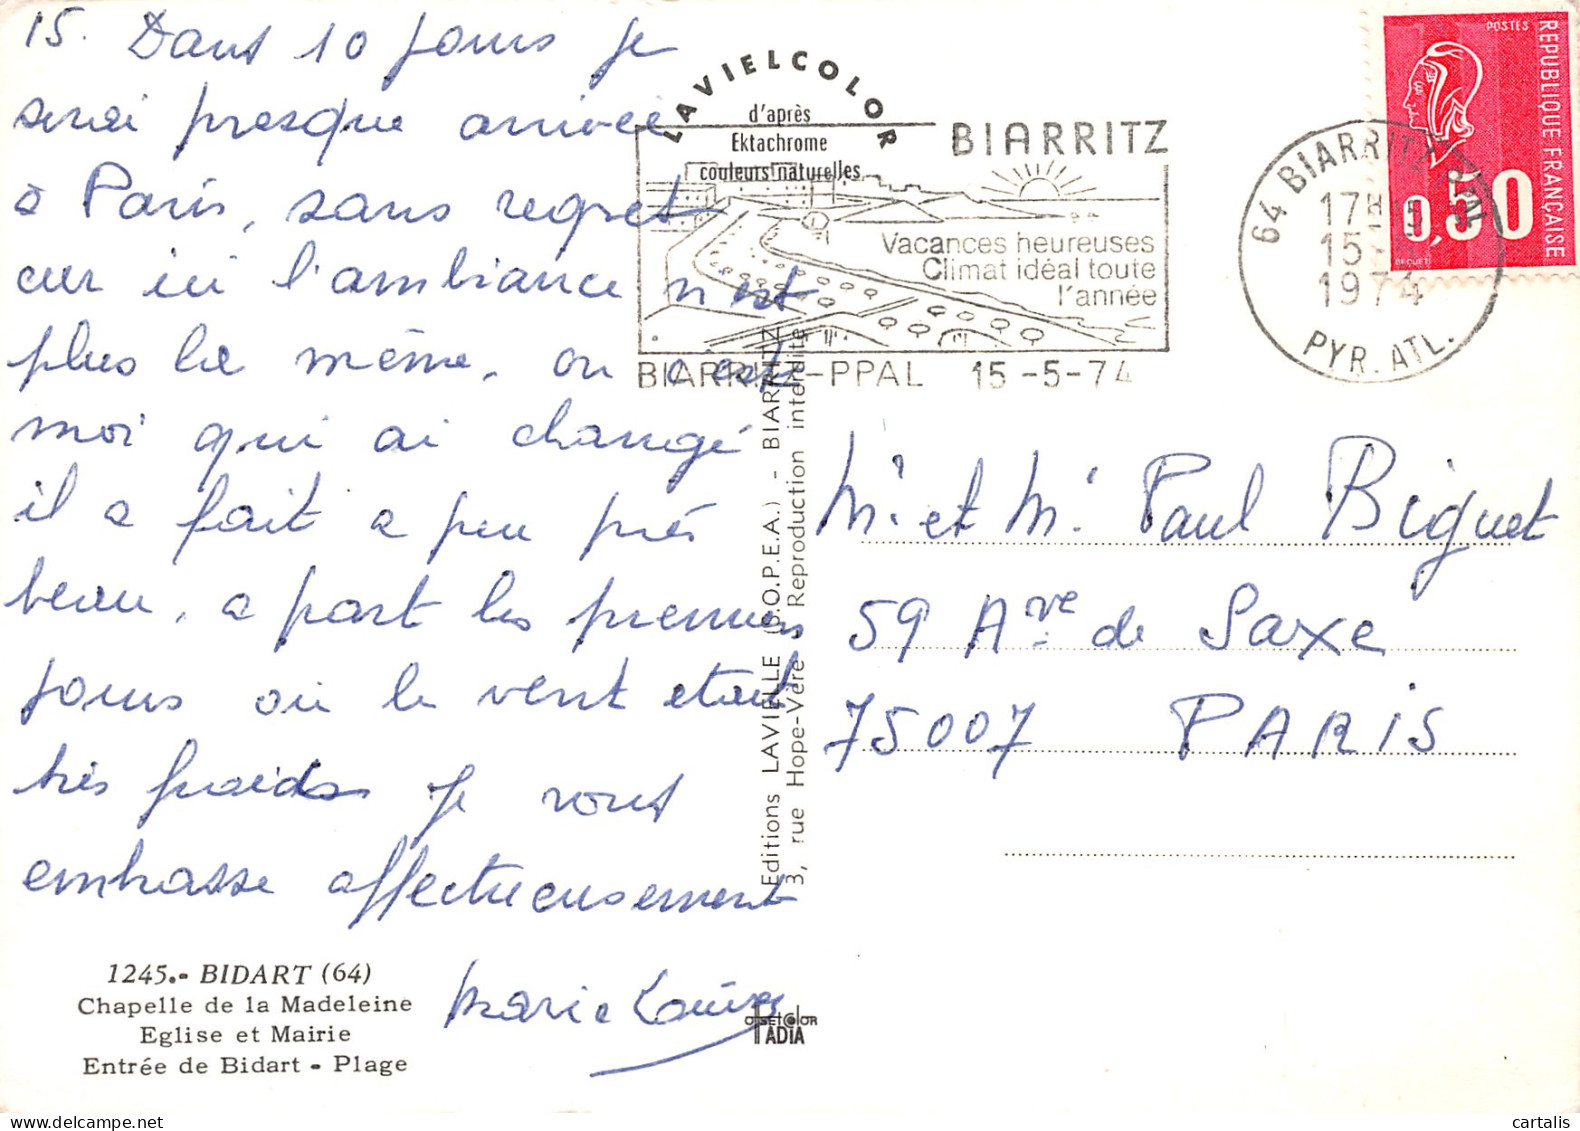 15. Dans 10 jours je
serai presque arrivée
à Paris, sans regret
car ici l'ambiance n'est
plus la même, ou c'est
moi qui ai changé
il a fait a peu près
beau, a part les premiers
jours où le vent était
très froid. Je vous
embrasse affectueusement
Marie Louise
1245.- BIDART (64)
Chapelle de la Madeleine
Eglise et Mairie
Entrée de Bidart - Plage
LAVIELCOLOR
d'après
Ektachrome
couleurs naturelles
Editions LAVIELLE (S.O.P.E.A.) - BIARRITZ
3, rue Hope-Vère Reproduction interdite
OFFSETCOLOR
IADIA
BIARRITZ
Vacances heureuses
Climat idéal toute
l'année
BIARRITZ-PPAL 15-5-74
64 BIARRITZ PPAL
17H15
15-5
1974
PYR. ATL.
POSTES
REPUBLIQUE FRANCAISE
0,50
BEQUET
Mr et Me Paul Biguet
59 Ave de Saxe
75007 PARIS
cartalis